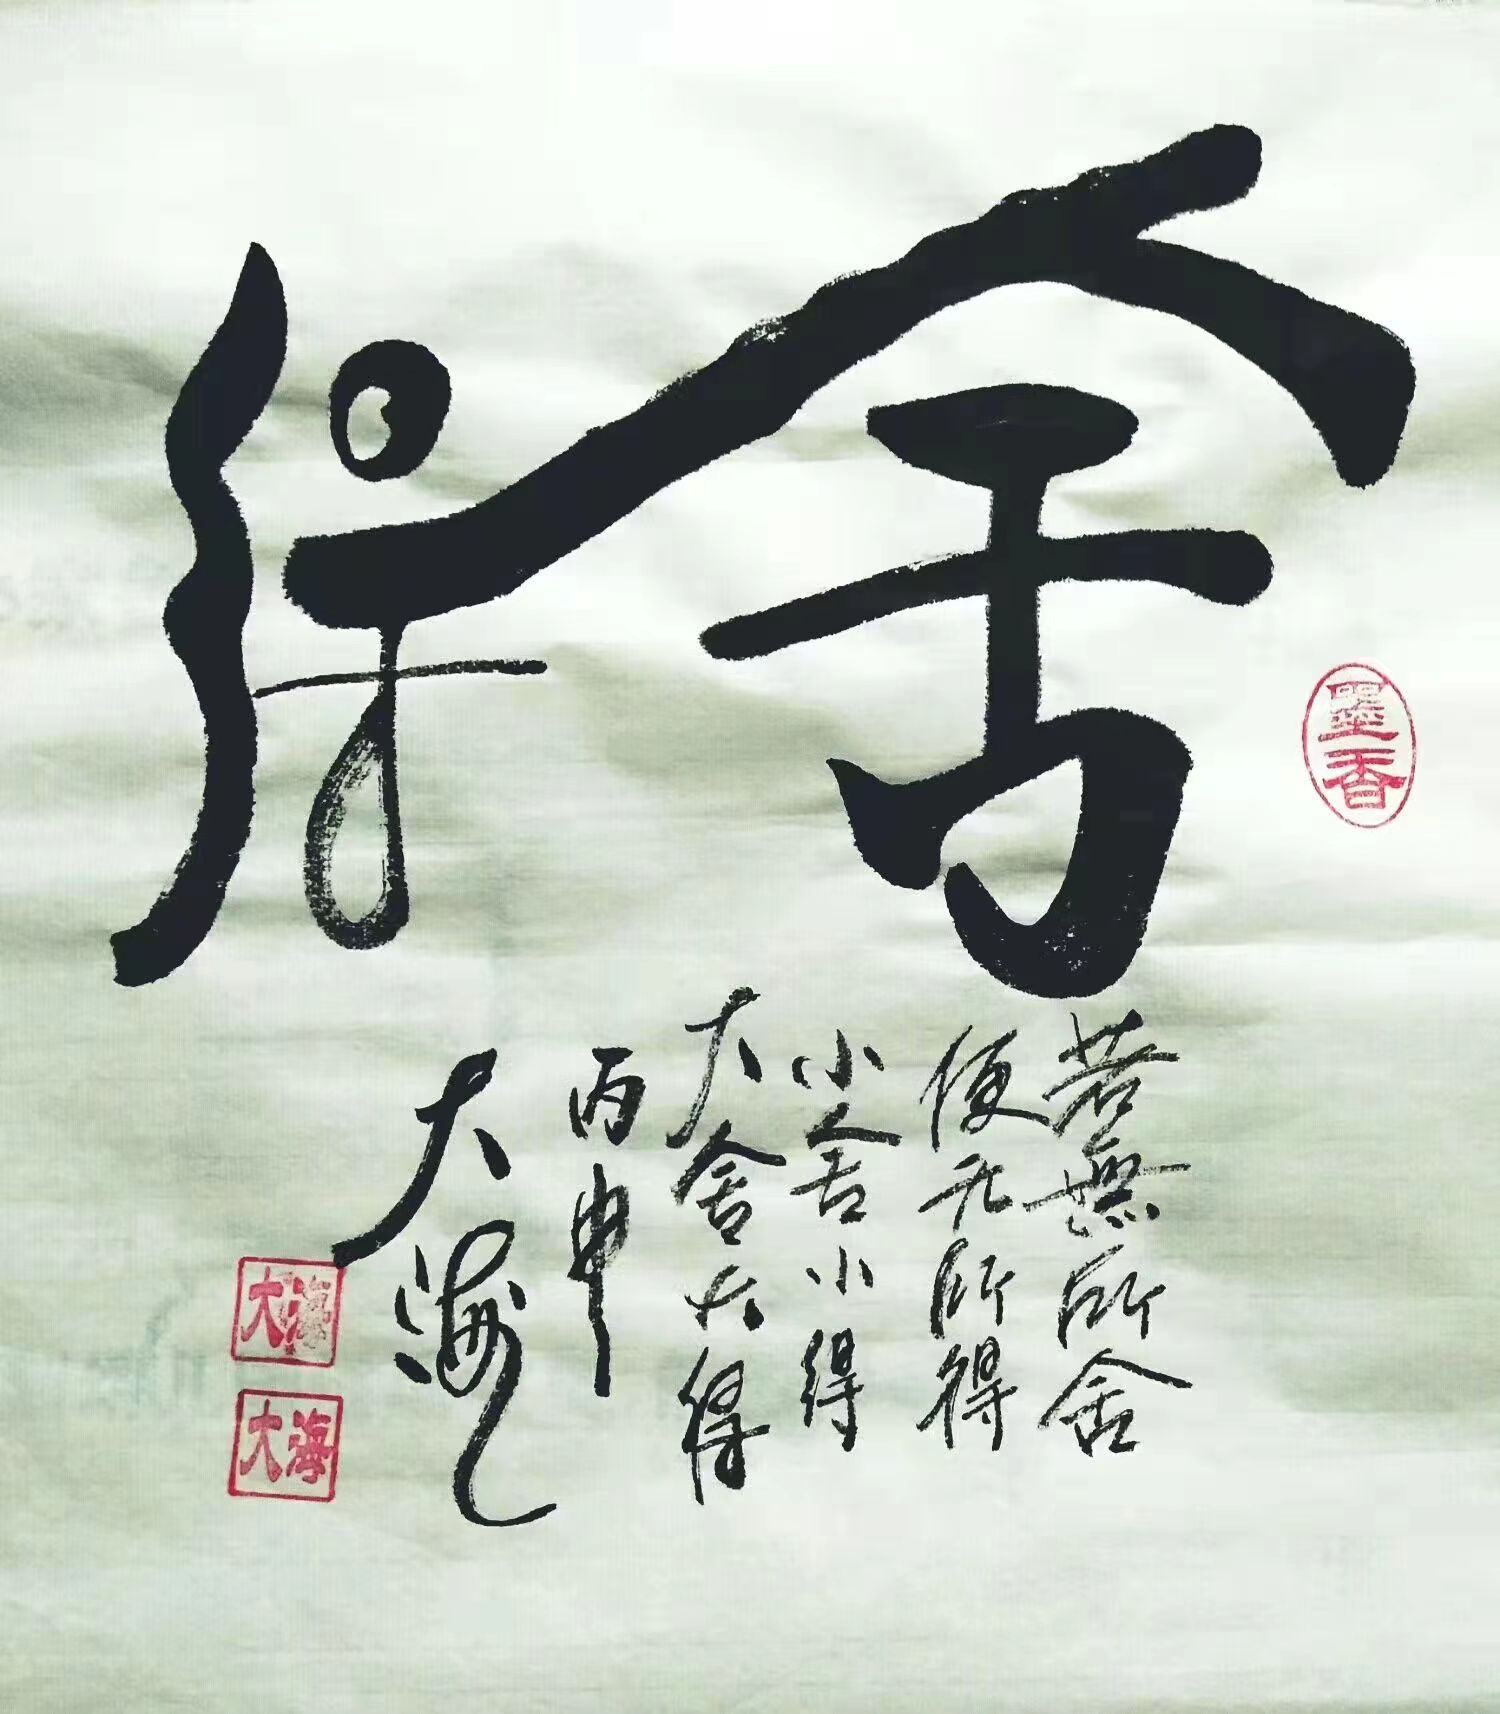 舍得
墨香
若無所舍
便无所得
小舍小得
大舍大得
丙申
大海
大海
大海